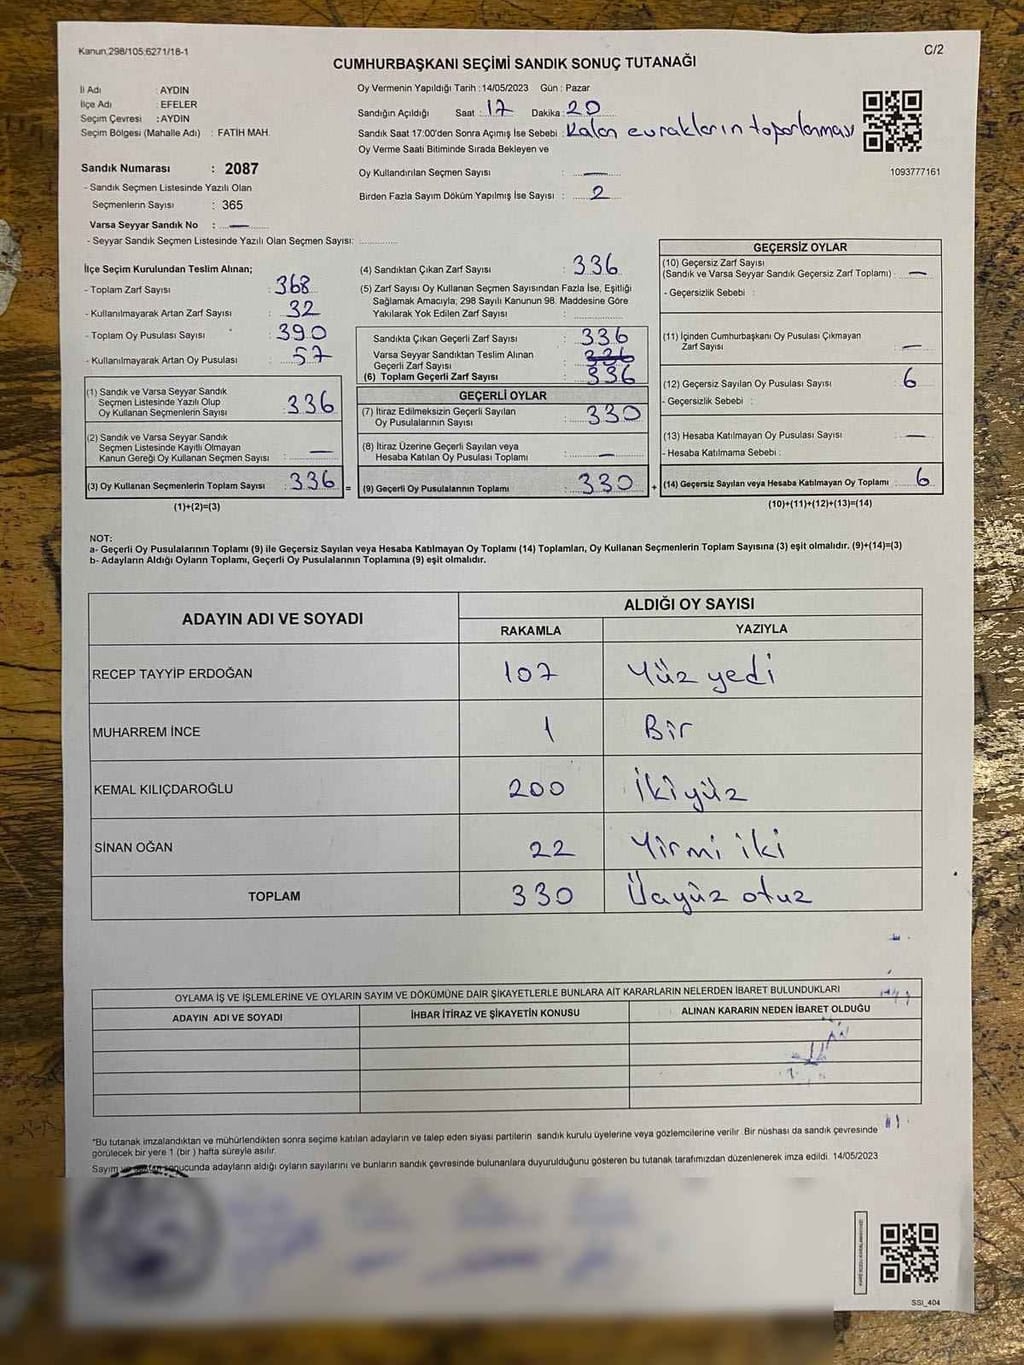 Kanun.298/105.6271/18-1
C/2
CUMHURBAŞKANI SEÇİMİ SANDIK SONUÇ TUTANAĞI
İl Adı : AYDIN
İlçe Adı : EFELER
Seçim Çevresi : AYDIN
Seçim Bölgesi (Mahalle Adı) : FATİH MAH.
Sandık Numarası : 2087
- Sandık Seçmen Listesinde Yazılı Olan
Seçmenlerin Sayısı : 365
Varsa Seyyar Sandık No : —
- Seyyar Sandık Seçmen Listesinde Yazılı Olan Seçmen Sayısı:
Oy Vermenin Yapıldığı Tarih : 14/05/2023 Gün : Pazar
Sandığın Açıldığı Saat : 17 Dakika : 20
Sandık Saat 17:00'den Sonra Açımış İse Sebebi : Kalan evrakların toparlanması
Oy Verme Saati Bitiminde Sırada Bekleyen ve
Oy Kullandırılan Seçmen Sayısı : —
Birden Fazla Sayım Döküm Yapılmış İse Sayısı : 2
1093777161
İlçe Seçim Kurulundan Teslim Alınan;
- Toplam Zarf Sayısı : 368
- Kullanılmayarak Artan Zarf Sayısı : 32
- Toplam Oy Pusulası Sayısı : 390
- Kullanılmayarak Artan Oy Pusulası : 57
(1) Sandık ve Varsa Seyyar Sandık
Seçmen Listesinde Yazılı Olup
Oy Kullanan Seçmenlerin Sayısı : 336
(2) Sandık ve Varsa Seyyar Sandık
Seçmen Listesinde Kayıtlı Olmayan
Kanun Gereği Oy Kullanan Seçmen Sayısı : —
(3) Oy Kullanan Seçmenlerin Toplam Sayısı : 336 =
(1)+(2)=(3)
(4) Sandıktan Çıkan Zarf Sayısı : 336
(5) Zarf Sayısı Oy Kullanan Seçmen Sayısından Fazla İse, Eşitliği
Sağlamak Amacıyla; 298 Sayılı Kanunun 98. Maddesine Göre
Yakılarak Yok Edilen Zarf Sayısı :
Sandıkta Çıkan Geçerli Zarf Sayısı : 336
Varsa Seyyar Sandıktan Teslim Alınan
Geçerli Zarf Sayısı : 336
(6) Toplam Geçerli Zarf Sayısı : 336
GEÇERLİ OYLAR
(7) İtiraz Edilmeksizin Geçerli Sayılan
Oy Pusulalarının Sayısı : 330
(8) İtiraz Üzerine Geçerli Sayılan veya
Hesaba Katılan Oy Pusulası Toplamı : —
(9) Geçerli Oy Pusulalarının Toplamı : 330 +
GEÇERSİZ OYLAR
(10) Geçersiz Zarf Sayısı
(Sandık ve Varsa Seyyar Sandık Geçersiz Zarf Toplamı) : —
- Geçersizlik Sebebi :
(11) İçinden Cumhurbaşkanı Oy Pusulası Çıkmayan
Zarf Sayısı : —
(12) Geçersiz Sayılan Oy Pusulası Sayısı : 6
- Geçersizlik Sebebi :
(13) Hesaba Katılmayan Oy Pusulası Sayısı : —
- Hesaba Katılmama Sebebi :
(14) Geçersiz Sayılan veya Hesaba Katılmayan Oy Toplamı : 6
(10)+(11)+(12)+(13)=(14)
NOT:
a- Geçerli Oy Pusulalarının Toplamı (9) ile Geçersiz Sayılan veya Hesaba Katılmayan Oy Toplamı (14) Toplamları, Oy Kullanan Seçmenlerin Toplam Sayısına (3) eşit olmalıdır. (9)+(14)=(3)
b- Adayların Aldığı Oyların Toplamı, Geçerli Oy Pusulalarının Toplamına (9) eşit olmalıdır.
ADAYIN ADI VE SOYADI
ALDIĞI OY SAYISI
RAKAMLA YAZIYLA
RECEP TAYYİP ERDOĞAN 107 Yüz yedi
MUHARREM İNCE 1 Bir
KEMAL KILIÇDAROĞLU 200 İkiyüz
SİNAN OĞAN 22 Yirmi iki
TOPLAM 330 Üçyüz otuz
OYLAMA İŞ VE İŞLEMLERİNE VE OYLARIN SAYIM VE DÖKÜMÜNE DAİR ŞİKAYETLERLE BUNLARA AİT KARARLARIN NELERDEN İBARET BULUNDUKLARI
ADAYIN ADI VE SOYADI İHBAR İTİRAZ VE ŞİKAYETİN KONUSU ALINAN KARARIN NEDEN İBARET OLDUĞU
*Bu tutanak imzalandıktan ve mühürlendikten sonra seçime katılan adayların ve talep eden siyasi partilerin sandık kurulu üyelerine veya gözlemcilerine verilir .Bir nüshası da sandık çevresinde
görülecek bir yere 1 (bir ) hafta süreyle asılır.
Sayım sonucunda adayların aldığı oyların sayılarını ve bunların sandık çevresinde bulunanlara duyurulduğunu gösteren bu tutanak tarafımızdan düzenlenerek imza edildi. 14/05/2023
SSI_404